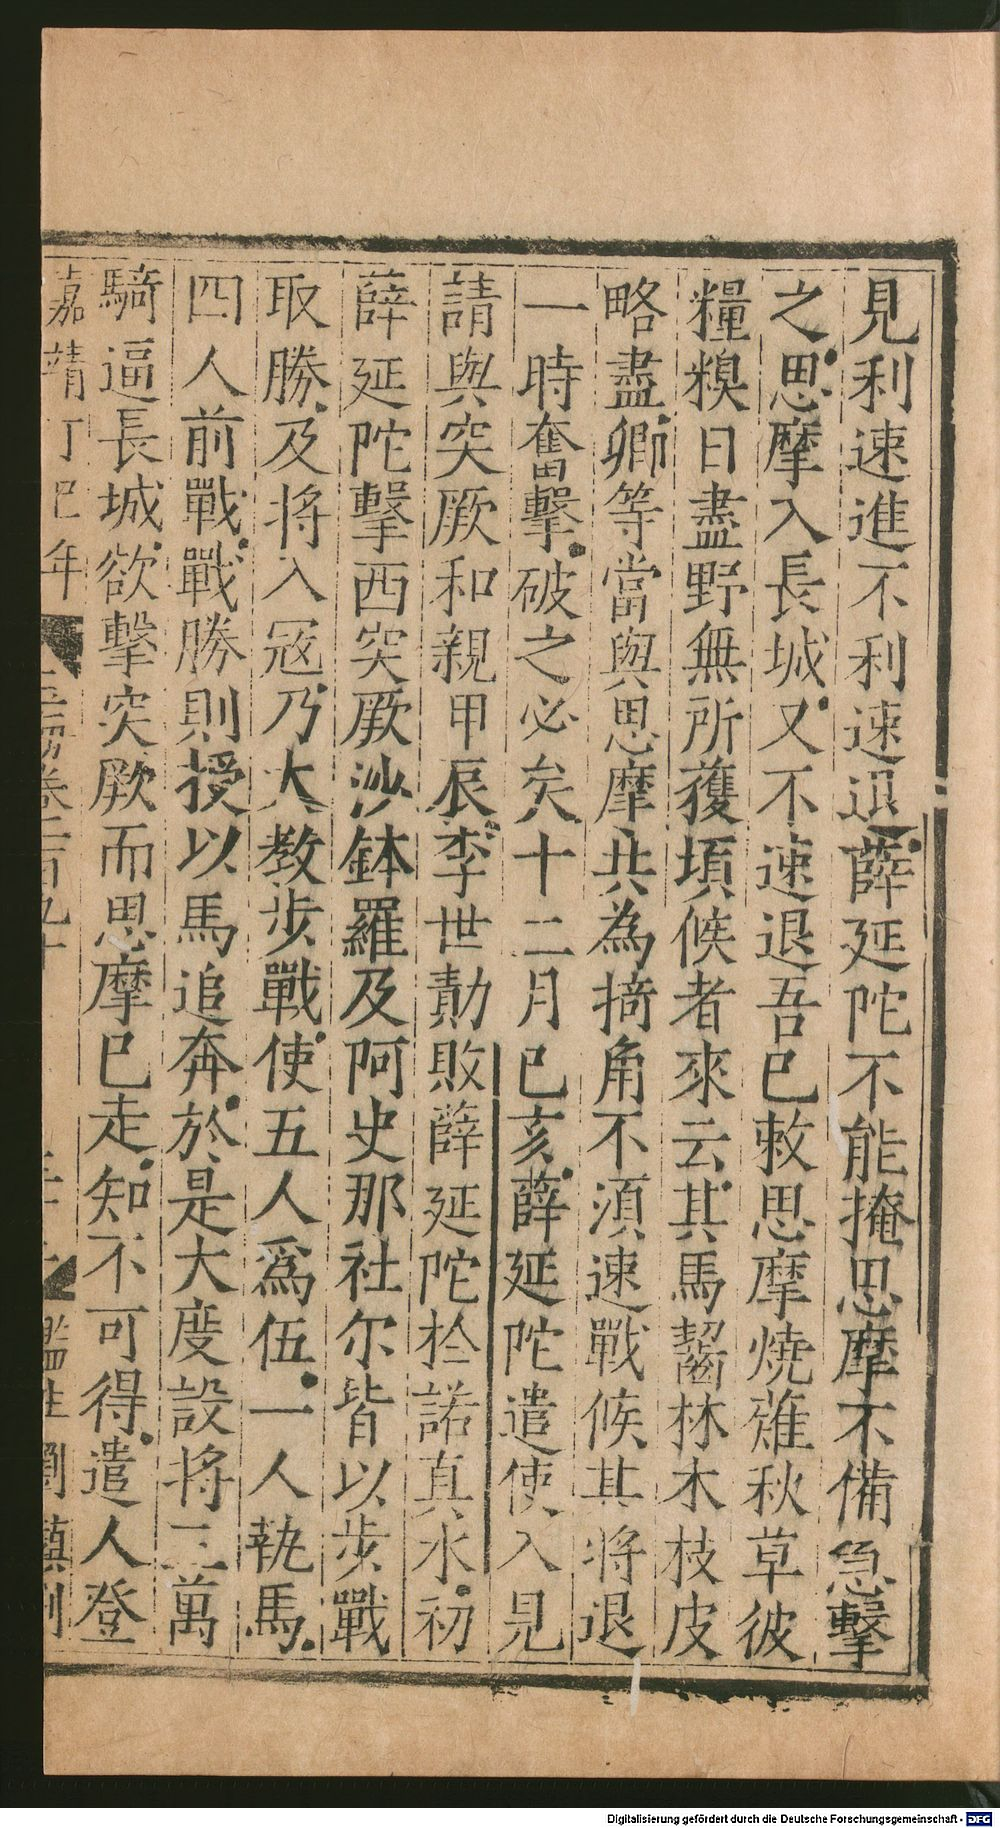 見利速進不利速退薛延陀不能掩思摩不備急擊
之思摩入長城又不速退吾已敕思摩燒薙秋草彼
糧糗日盡野無所獲頃候者來云其馬齧林木枝皮
略盡卿等當與思摩共為掎角不須速戰候其將退
一時奮擊破之必矣十二月已亥薛延陀遣使入見
請與突厥和親甲辰李世勣敗薛延陀於諾真水初
薛延陀擊西突厥沙鉢羅及阿史那社尔皆以步戰
取勝及將入寇乃大教步戰使五人爲伍一人執馬
四人前戰戰勝則授以馬追奔於是大度設將三萬
騎逼長城欲擊突厥而思摩已走知不可得遣人登
嘉靖丁巳年 卷二百九十 監生劉鎮刊
Digitalisierung gefördert durch die Deutsche Forschungsgemeinschaft - DFG